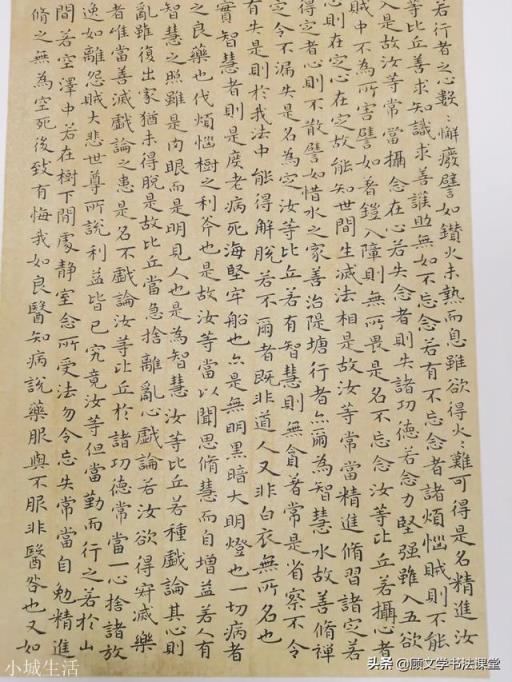 若行者之心數〻懈廢譬如鑽火未熱而息雖欲得火〻難可得是名精進汝
等比丘善求知識求善護助無如不忘念若有不忘念者諸煩惱賊則不能
入是故汝等常當攝念在心若失念者則失諸功德若念力堅强雖入五欲
賊中不為所害譬如著鎧入障則無所畏是名不忘念汝等比丘若攝心者
心則在定心在定故能知世間生滅法相是故汝等常當精進脩習諸定若
得定者心則不散譬如惜水之家善治隄塘行者亦爾為智慧水故善脩禪
定令不漏失是名為定汝等比丘若有智慧則無貪著常是省察不令
有失是則於我法中能得解脫若不爾者既非道人又非白衣無所名也
實智慧者則是度老病死海堅牢船也亦是無明黑暗大明燈也一切病者
之良藥也伐煩惱樹之利斧也是故汝等當以聞思脩慧而自增益若人有
智慧之照雖是肉眼而是明見人也是為智慧汝等比丘若種戲論其心則
亂雖復出家猶未得脫是故比丘當急捨離亂心戲論若汝欲得寂滅樂
者惟當善滅戲論之患是名不戲論汝等比丘於諸功德常當一心捨諸放
逸如離怨賊大悲世尊所說利益皆已究竟汝等但當勤而行之若於山
間若空澤中若在樹下閒處靜室念所受法勿令忘失常當自勉精進
脩之無為空死後致有悔我如良醫知病說藥服與不服非醫咎也又如
小城生活
头条@顾文学书法课堂